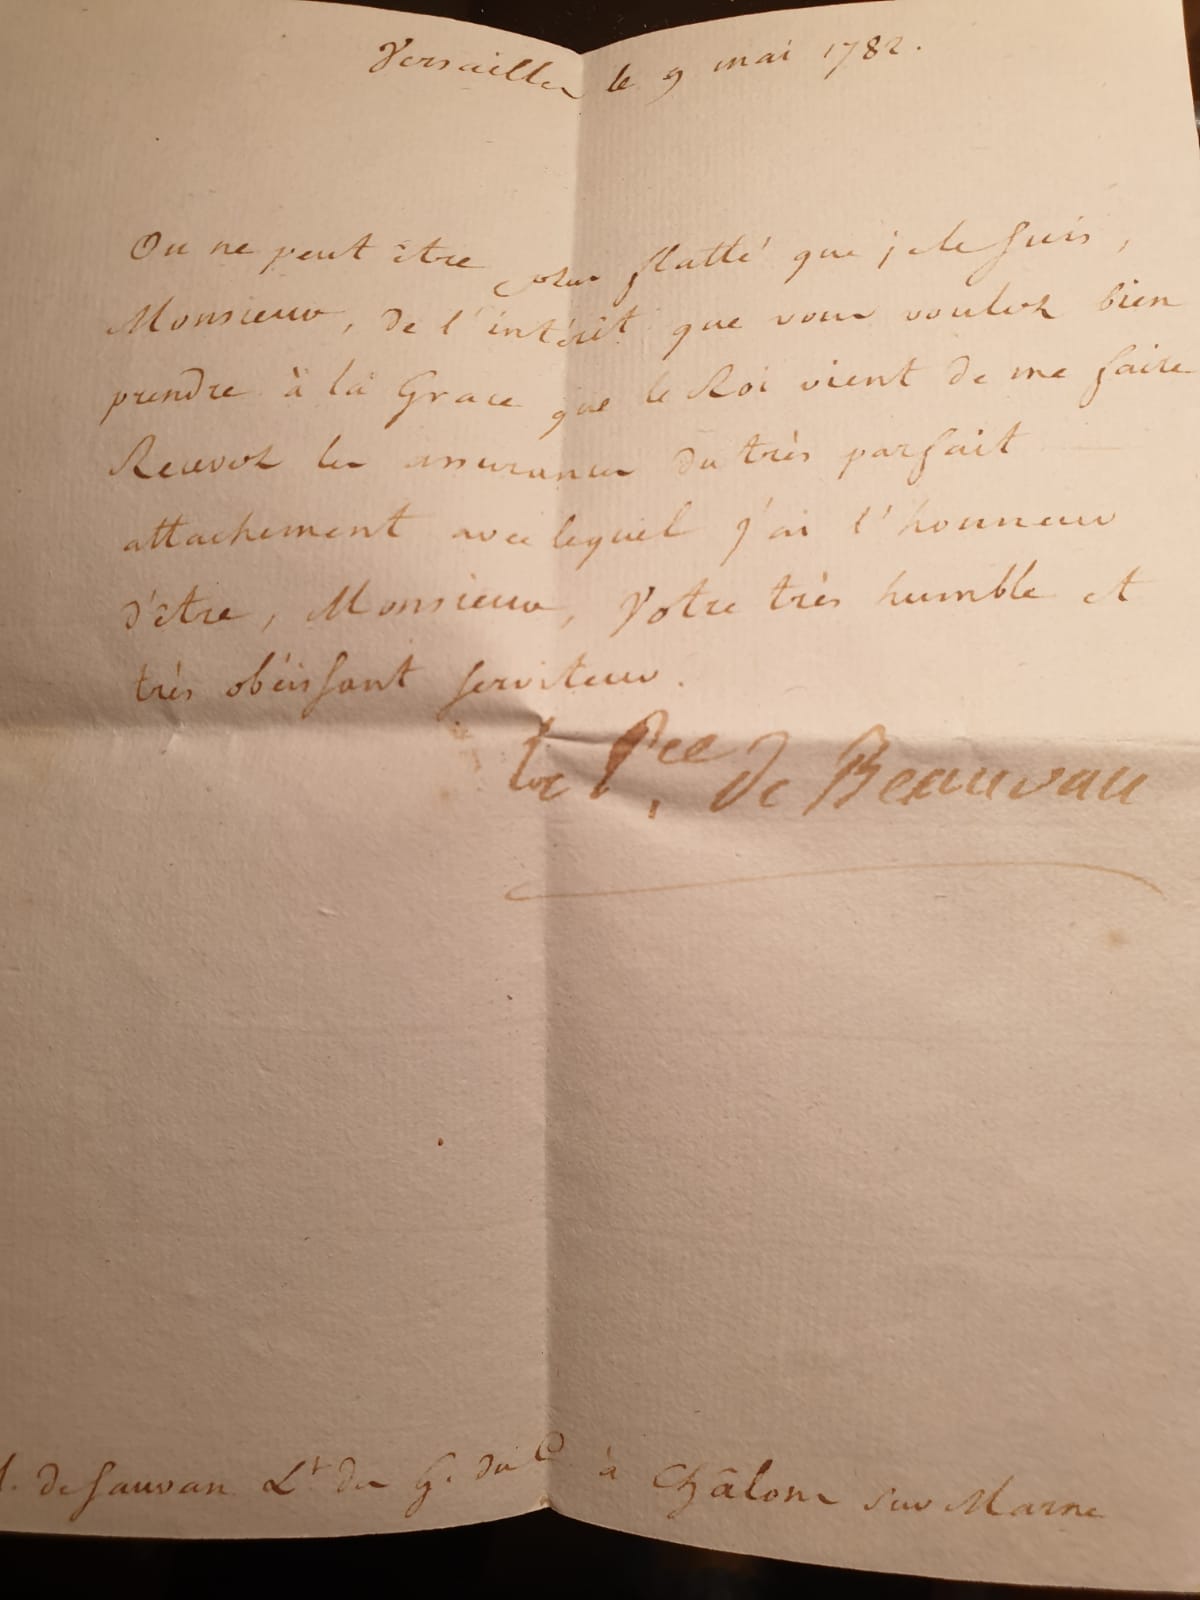 Versailles le 9 mai 1782.
On ne peut être plus flatté que je le suis,
Monsieur, de l'intérêt que vous voulez bien
prendre à la Grace que le Roi vient de me faire
Recevez les assurances du très parfait
attachement avec lequel j'ai l'honneur
d'être, Monsieur, Votre très humble et
très obéissant serviteur.
Le Pce de Beauvau
de Sauvan Lt des G. du C à Châlons sur Marne